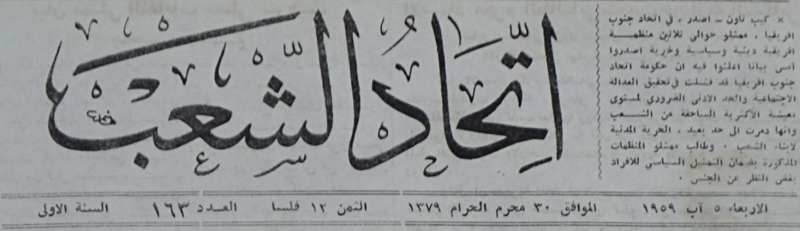 اتحاد الشعب
× كيب تاون - اصدر ، في اتحاد جنوب
افريقيا ، ممثلو حوالي ثلاثين منظمة
افريقية دينية وسياسية وخيرية اصدروا
أمس بيانا اعلنوا فيه ان حكومة اتحاد
جنوب افريقيا قد فشلت في تحقيق العدالة
الاجتماعية والحد الادنى الضروري لمستوى
معيشة الاكثرية الساحقة من الشعب
وانها دمرت الى حد بعيد ، الحرية المدنية
لابناء الشعب . وطالب ممثلو المنظمات
المذكورة بضمان التمثيل السياسي للافراد
بغض النظر عن الجنس .
الاربعاء ٥ آب ١٩٥٩ الموافق ٣٠ محرم الحرام ١٣٧٩ الثمن ١٢ فلسا العدد ١٦٣ السنة الاولى